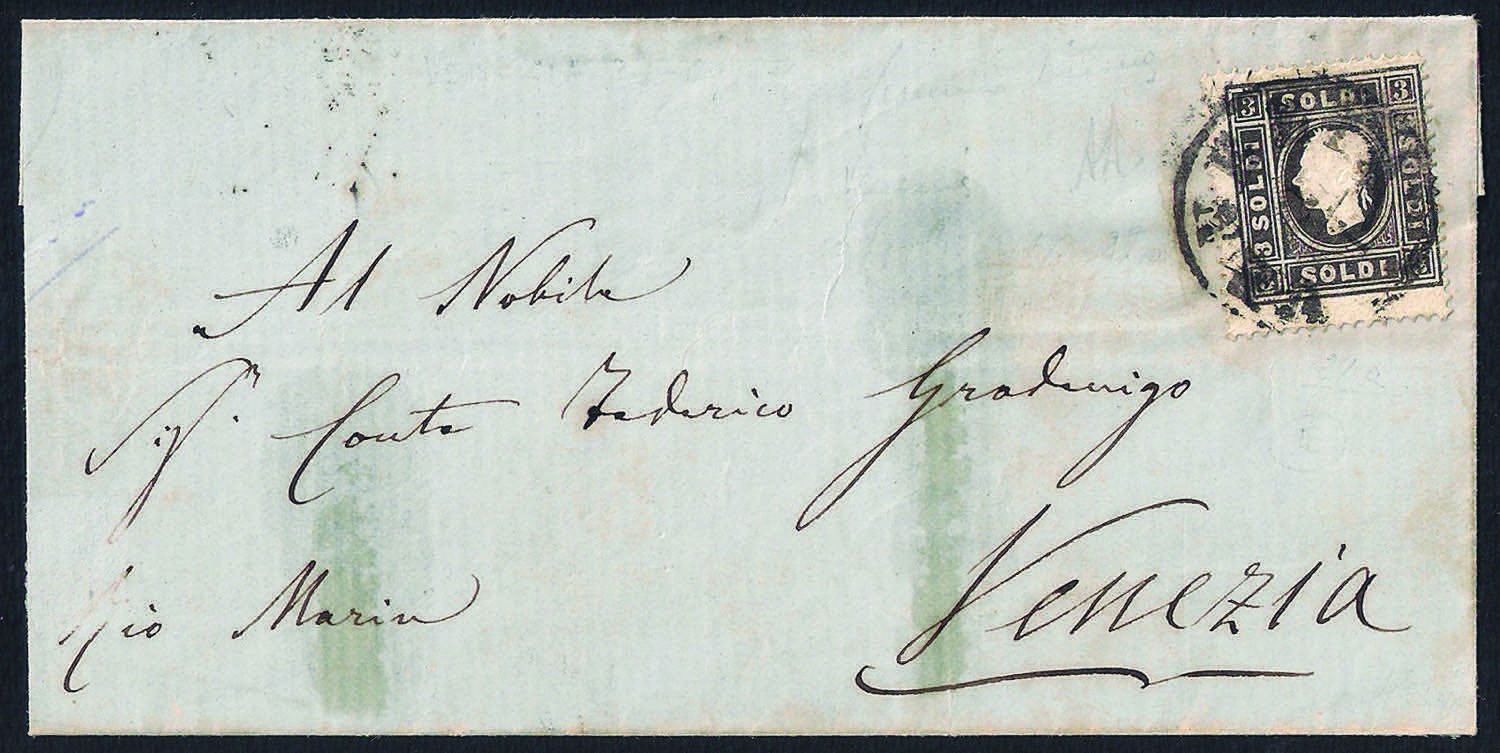 3 SOLDI 3
3 SOLDI
SOLDI
SOLDI
Al Nobile
Sigr. Conte Federico Gradenigo
Rio Marin
Venezia